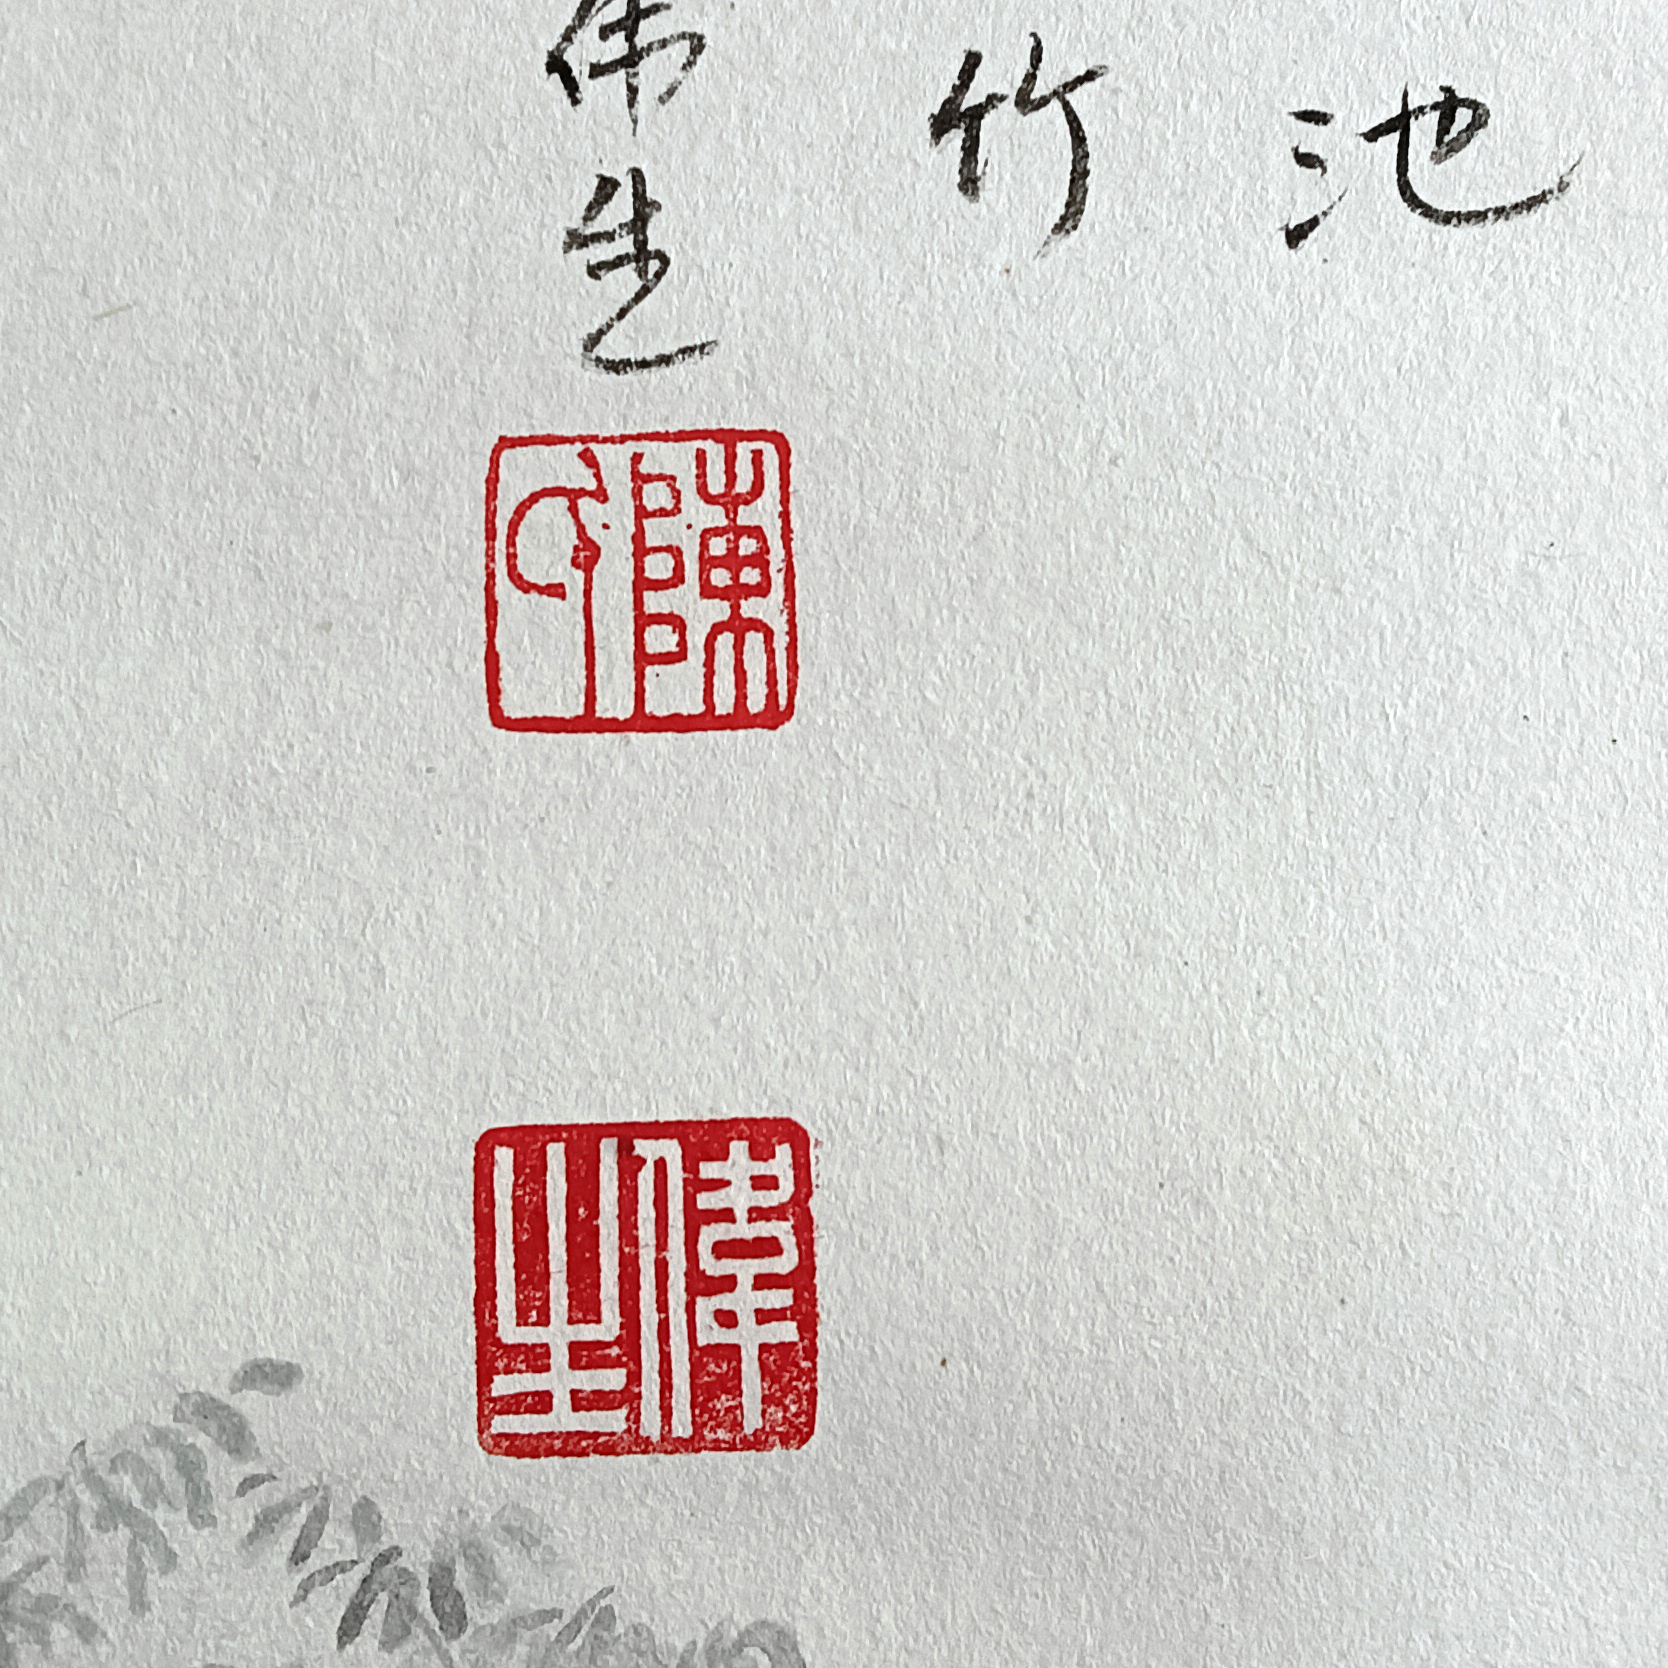 池
竹
伟生
陳印
偉生